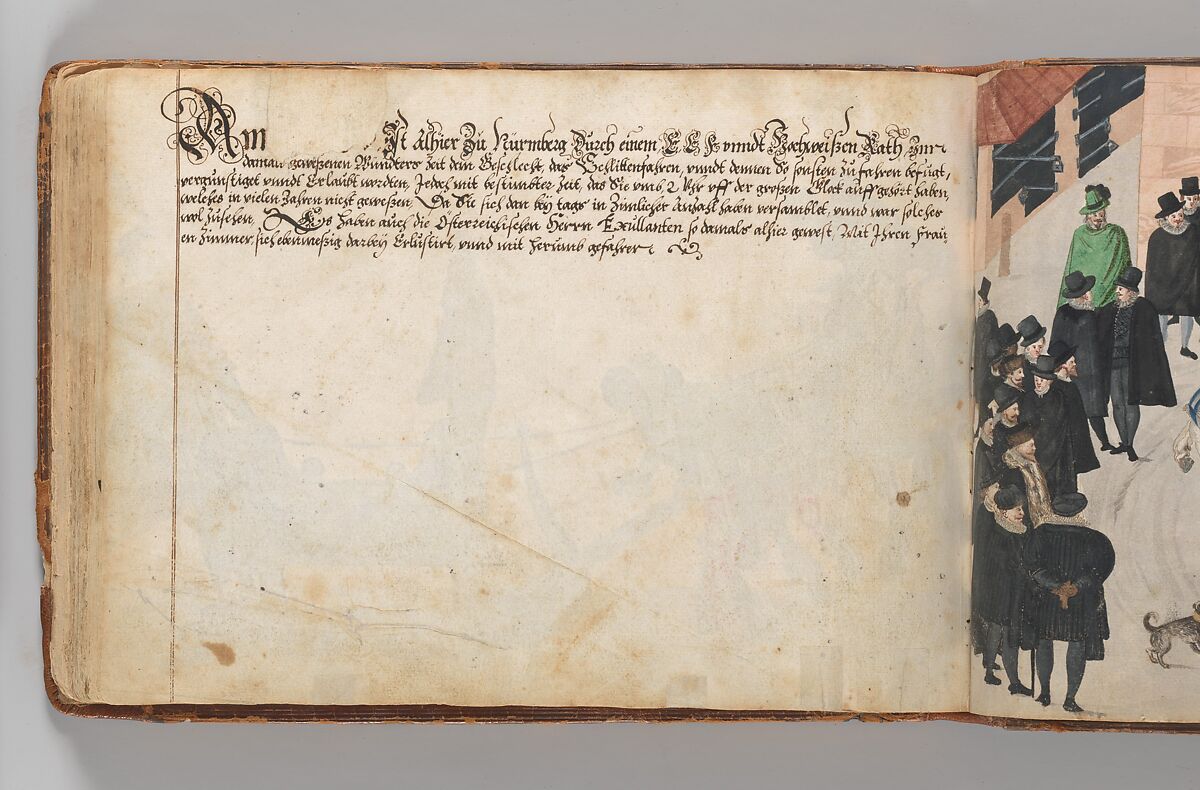 Am Ist Alhier Zu Nürmberg Durch einem E E F vnndt Hochweißen Rath Inn
damals geweßenen Winters Zeit dem Geschlecht, das Schlittenfahren, vnndt denen So sonsten Zu fahren befugt,
vergünstiget vnndt Erlaubt worden, Jedoch mit bestimbter Zeit, das Sie vmb 2 Vhr vff der großen Glock auffgehört haben,
welches in vielen Jahren nicht geweßen, Da Sie sich dan bey tags in Zimlicher Anzahl haben versamblet, vnnd war solches
wol Zusehen, Es haben auch die Osterreichischen Herrn Exullanten so damals alhier gewest, Mit Ihren Frau,,
en Zimmer, sich ebenmeßig darbey Erlustirt, vnnd mit herumb gefahren